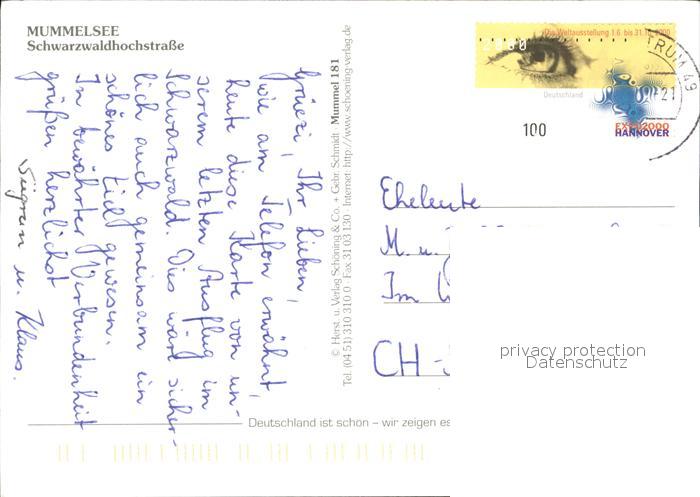 MUMMELSEE
Schwarzwaldhochstraße
Grüezi, Ihr Lieben,
wie am Telefon erwähnt,
heute diese Karte von un-
serem letzten Ausflug im
Schwarzwald. Dies wär sicher-
lich auch gemeinsam ein
schönes Ziel gewesen.
In bewährter Verbundenheit
grüßen herzlichst
Sigrun u. Klaus.
© Herst. u. Verlag Schöning & Co. + Gebr. Schmidt Mummel 181
Tel. (04 51) 310 310 0 · Fax 31 03 130 · Internet: http://www.schoening-verlag.de
Deutschland ist schön – wir zeigen es
Die Weltausstellung 1.6. bis 31.10.2000
2000
Deutschland
100
EXPO2000
HANNOVER
TRUM 49
21
Eheleute
M. u.
Im
CH-
privacy protection
Datenschutz